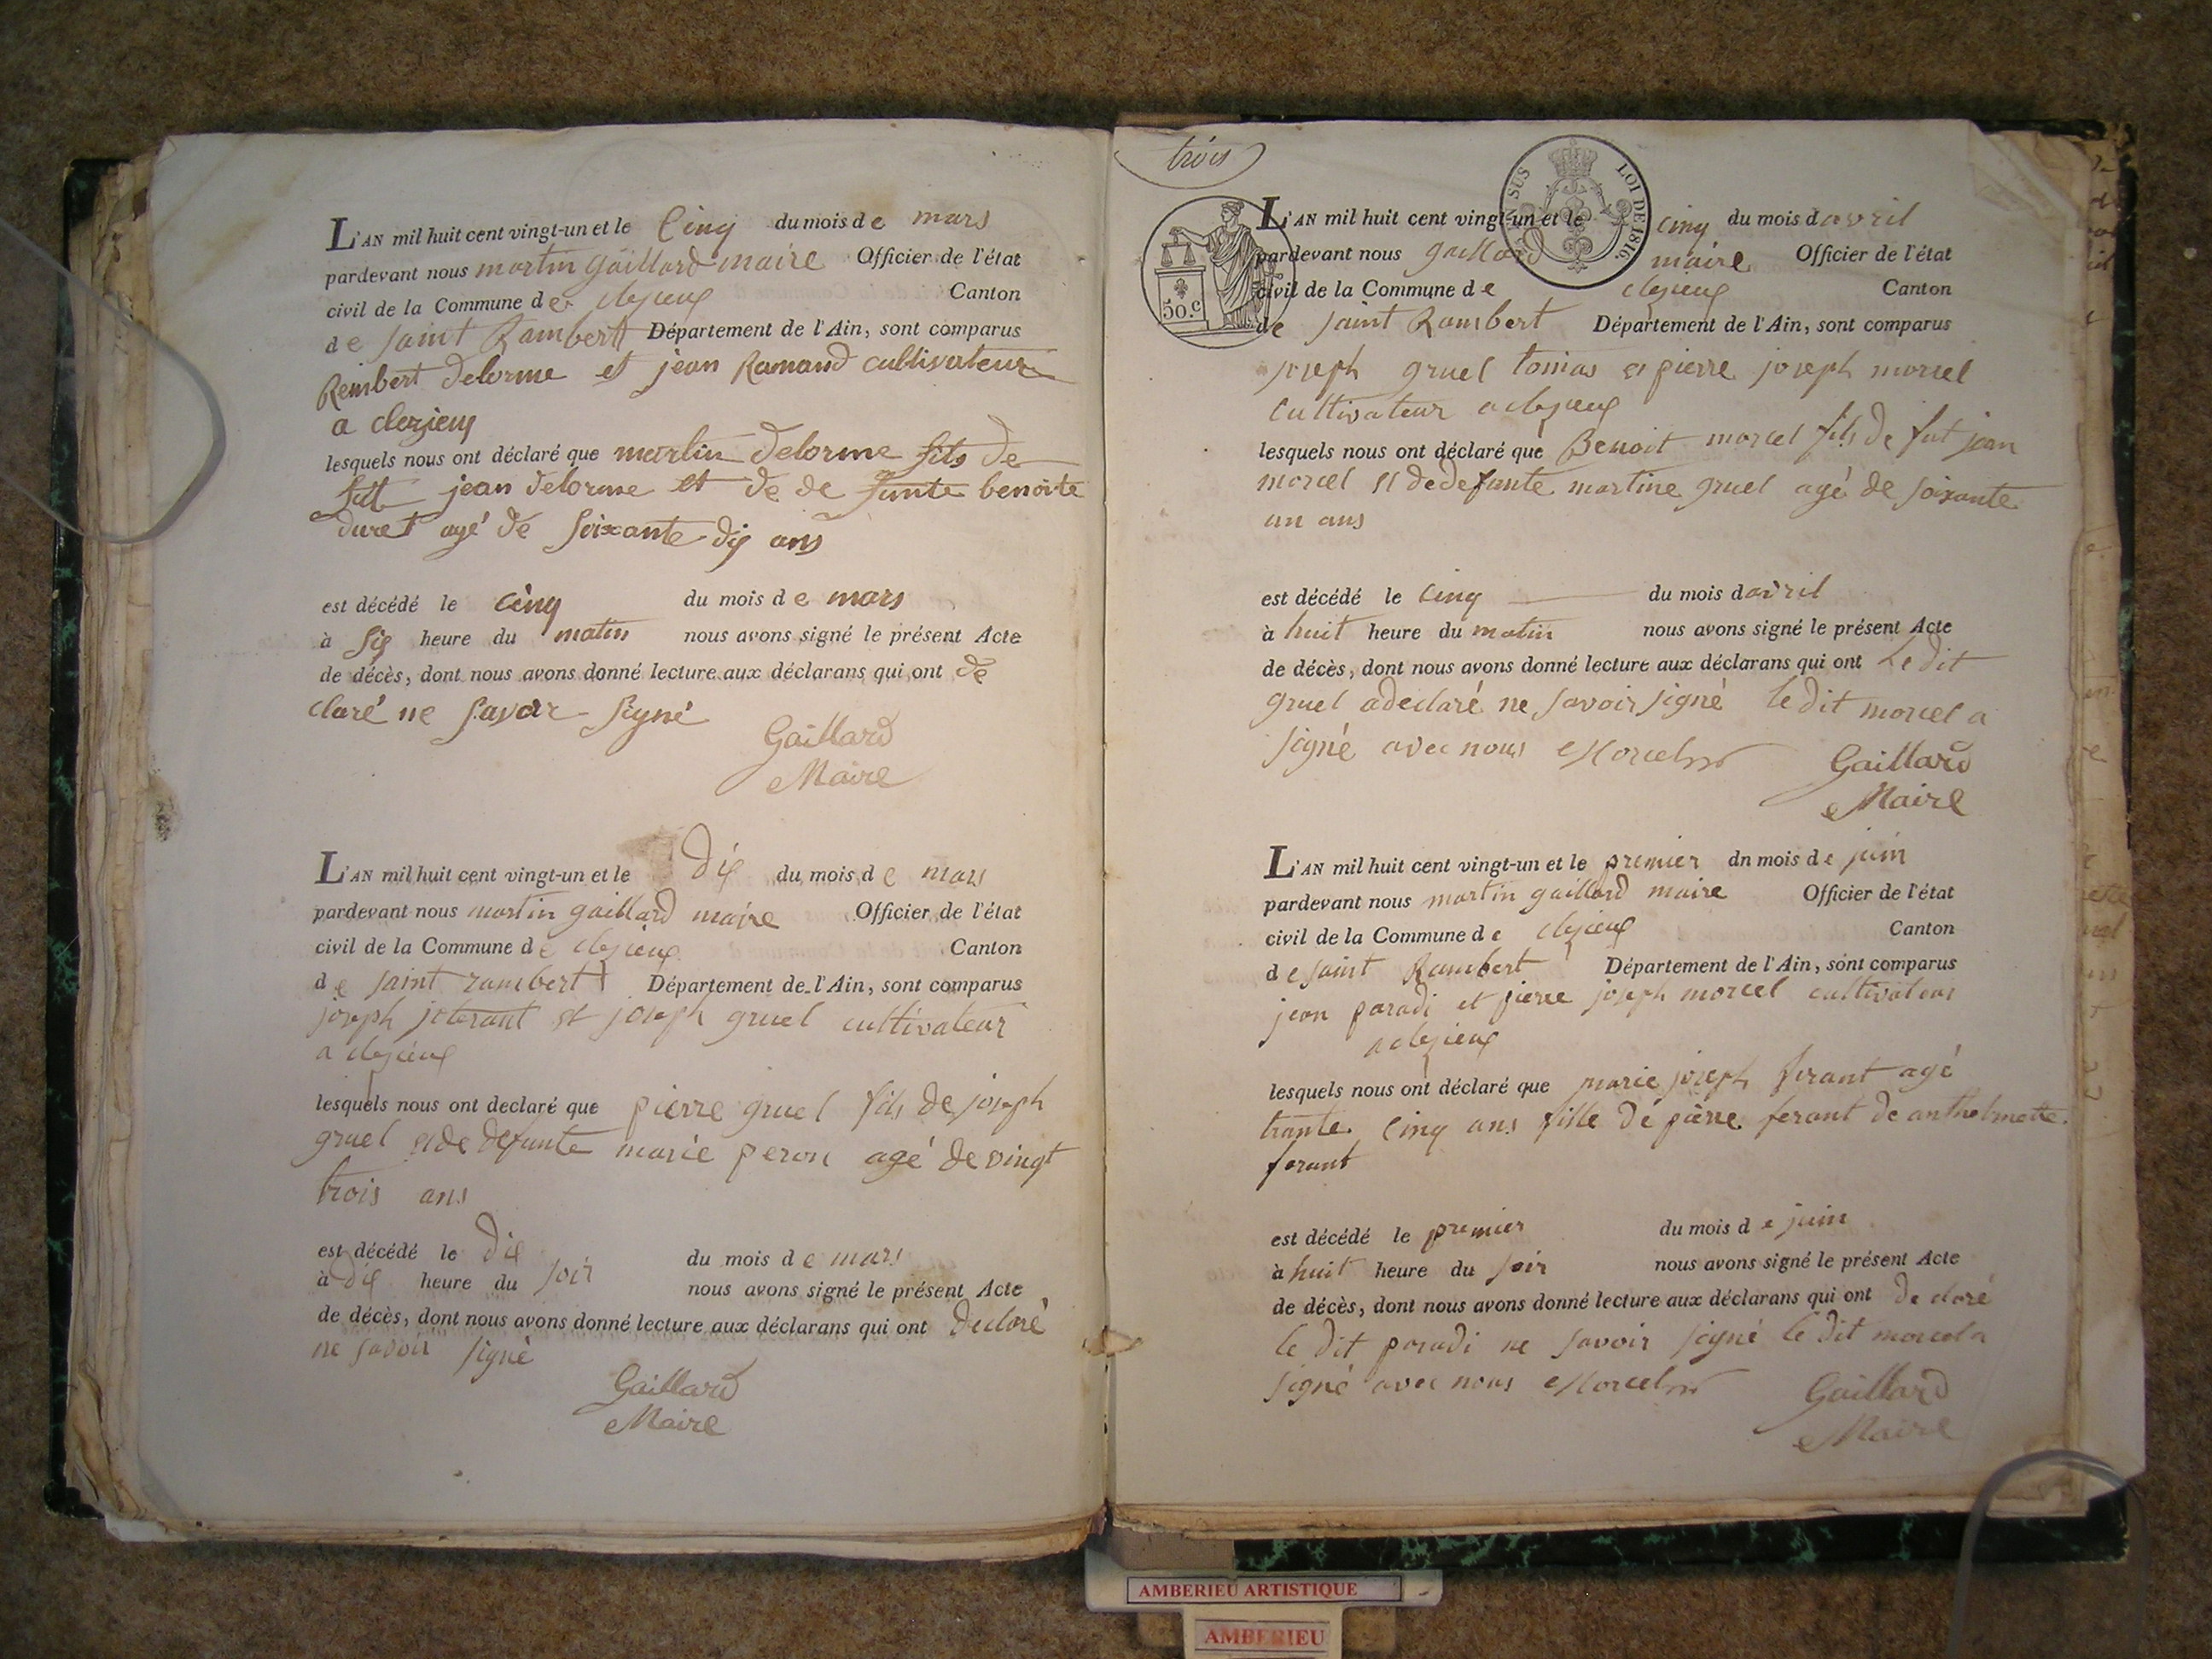 L'AN mil huit cent vingt-un et le Cinq du mois de mars
pardevant nous martin gaillard maire Officier de l'état
civil de la Commune de clezieux Canton
de saint Rambert Département de l'Ain, sont comparus
Rembert delorme et jean Ramand cultivateur
a clezieux
lesquels nous ont déclaré que martin delorme fils de
fut jean delorme et de de funte benoite
duret agé de soixante dix ans
est décédé le cinq du mois de mars
à six heure du matin nous avons signé le présent Acte
de décès, dont nous avons donné lecture aux déclarans qui ont de
claré ne savoir signé
Gaillard
Maire
L'AN mil huit cent vingt-un et le dix du mois de mars
pardevant nous martin gaillard maire Officier de l'état
civil de la Commune de clezieux Canton
de saint rambert Département de l'Ain, sont comparus
joseph et joseph gruel cultivateur
a clezieux
lesquels nous ont declaré que pierre gruel fils de joseph
gruel et de defunte marie peron agé de vingt
trois ans
est décédé le dix du mois de mars
à dix heure du soir nous avons signé le présent Acte
de décès, dont nous avons donné lecture aux déclarans qui ont declaré
ne savoir signé
Gaillard
Maire
trois
SUS LOI DE 1816.
50.c
L'AN mil huit cent vingt-un et le cinq du mois davril
pardevant nous gaillard maire Officier de l'état
civil de la Commune de clezieux Canton
de saint Rambert Département de l'Ain, sont comparus
joseph gruel tomas et pierre joseph morcel
cultivateur a clezieux
lesquels nous ont déclaré que Benoit morcel fils de fut jean
morcel et dedefunte martine gruel agé de soixante
un ans
est décédé le cinq du mois davril
à huit heure du matin nous avons signé le présent Acte
de décès, dont nous avons donné lecture aux déclarans qui ont Le dit
gruel adeclaré ne savoir signé le dit morcel a
signé avec nous Morcel
Gaillard
Maire
L'AN mil huit cent vingt-un et le premier dn mois de juin
pardevant nous martin gaillard maire Officier de l'état
civil de la Commune de clezieux Canton
de saint Rambert Département de l'Ain, sont comparus
jean paradi et pierre joseph morcel cultivateur
a clezieux
lesquels nous ont déclaré que marie joseph ferant agé
trante cinq ans fille de pierre ferant de anthelmette
ferant
est décédé le premier du mois de juin
à huit heure du soir nous avons signé le présent Acte
de décès, dont nous avons donné lecture aux déclarans qui ont de claré
le dit paradi ne savoir signé le dit morcel a
signé avec nous Morcel
Gaillard
Maire
AMBERIEU ARTISTIQUE
AMBERIEU